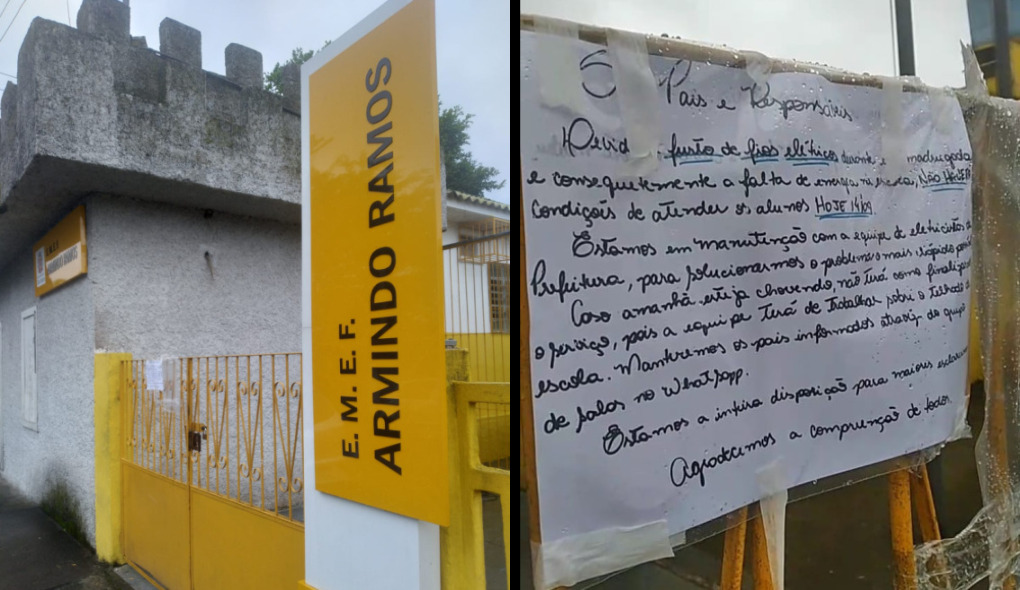 E. M. E. F.
ARMINDO RAMOS
E.M.E.F.
ARMINDO RAMOS
Pais e Responsáveis
Devid furto de fios elétricos durante a madrugada
e consequentemente a falta de energia na escola, NÃO HAVERÁ
condições de atender os alunos HOJE 14/09
Estamos em manutenção com a equipe de eletricistas da
Prefeitura, para solucionarmos o problema o mais rápido
Caso amanhã esteja chovendo, não terá como finalizar
o serviço, pois a equipe terá de trabalhar sobri o telhado da
escola. Manteremos os pais informados através do grupo
de salas no WhatsApp.
Estamos a inteira disposição para maiores
Agradecemos a compreensão de todos